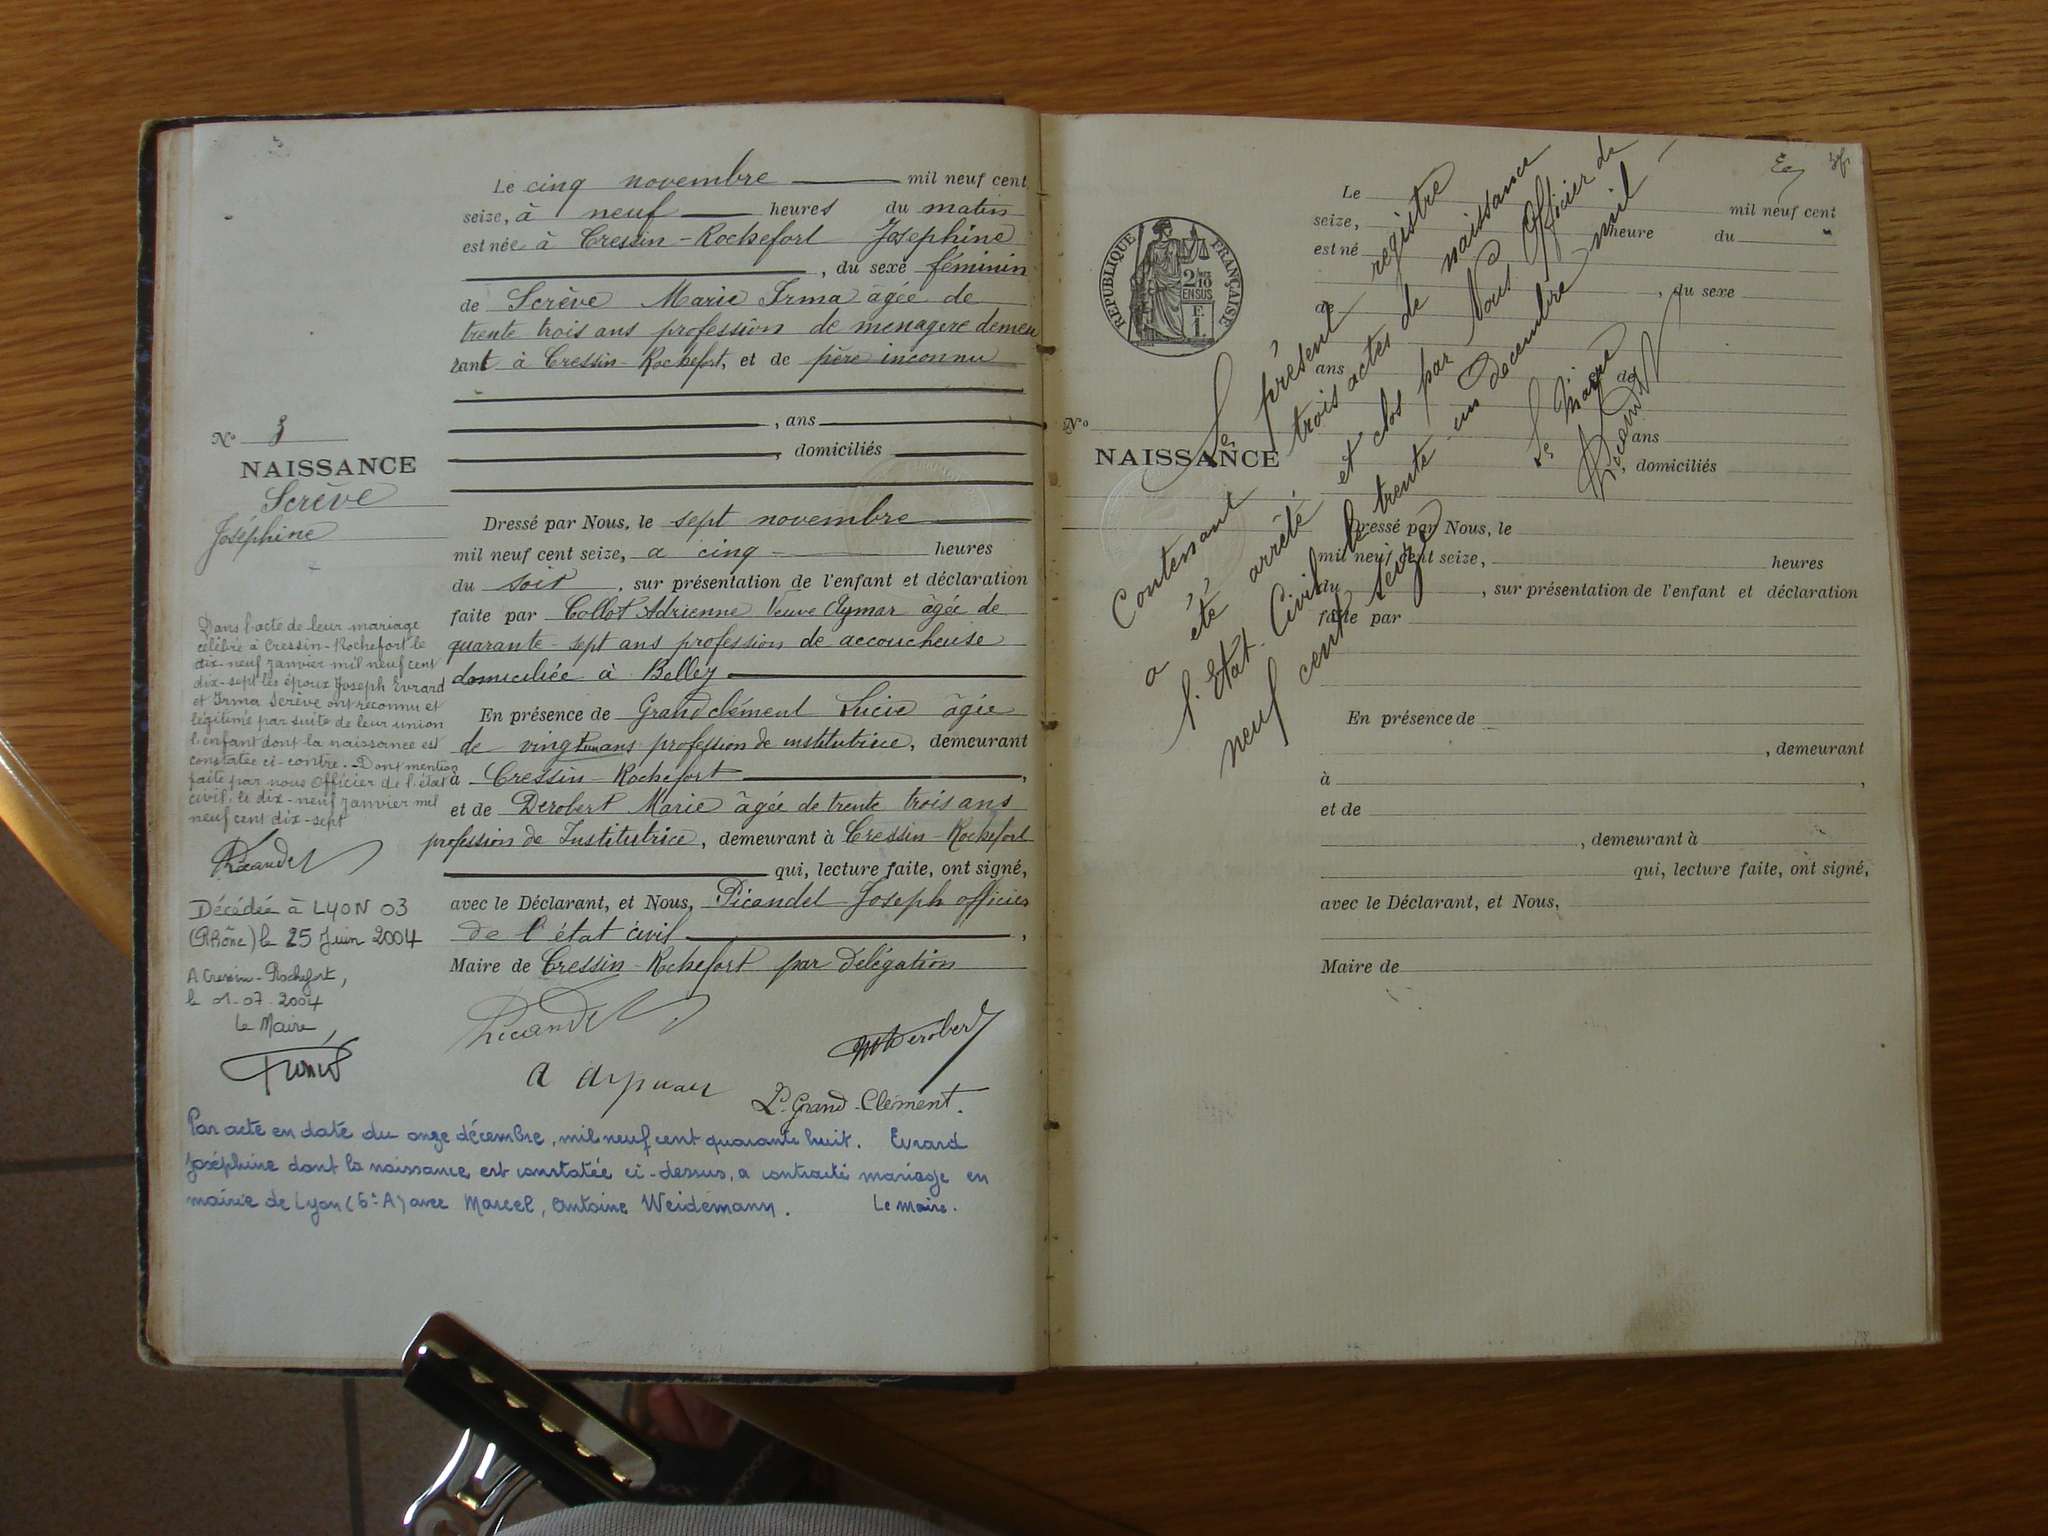 Le cinq novembre mil neuf cent
seize, à neuf heures du matin
est née à Cressin-Rochefort Joséphine
, du sexe féminin
de Scrève Marie Irma âgée de
trente trois ans profession de menagere demeu
rant à Cressin-Rochefort, et de père inconnu
, ans
, domiciliés
N° 3
NAISSANCE
Scrève
Joséphine
Dressé par Nous, le sept novembre
mil neuf cent seize, a cinq heures
du soir, sur présentation de l'enfant et déclaration
faite par Collot Adrienne Veuve Aymar âgée de
quarante-sept ans profession de accoucheuse
domiciliée à Belley
En présence de Grandclément Lucie âgée
de vingt un ans profession de institutrice, demeurant
à Cressin-Rochefort,
et de Derobert Marie âgée de trente trois ans
profession de Institutrice, demeurant à Cressin-Rochefort
qui, lecture faite, ont signé,
avec le Déclarant, et Nous, Picandet Joseph officier
de l'état civil,
Maire de Cressin-Rochefort par délégation
Picandet
M Derobert
L. Grand-Clément.
Dans l'acte de leur mariage
célébré à Cressin-Rochefort le
dix-neuf janvier mil neuf cent
dix-sept les époux Joseph Evrard
et Irma Scrève ont reconnu et
légitimé par suite de leur union
l'enfant dont la naissance est
constatée ci-contre. - Dont mention
faite par nous Officier de l'état
civil, le dix-neuf janvier mil
neuf cent dix-sept
Picandet
Décédée à LYON 03
(Rhône) le 25 Juin 2004
A Cressin-Rochefort,
le 01-07-2004
Le Maire,
Par acte en date du onze décembre, mil neuf cent quarante huit. Evrard
Joséphine dont la naissance est constatée ci-dessus, a contracté mariage en
mairie de Lyon (6e A) avec Marcel, Antoine Weidemann. Le Maire.
Le mil neuf cent
seize, heure du
est né
, du sexe
de
ans
de
N°
NAISSANCE
ans
, domiciliés
Dressé par Nous, le
mil neuf cent seize, heures
du , sur présentation de l'enfant et déclaration
faite par
En présence de
, demeurant
à ,
et de
, demeurant à
qui, lecture faite, ont signé,
avec le Déclarant, et Nous,
Maire de
RÉPUBLIQUE FRANÇAISE
2/10
EN SUS
E
1
Le présent registre
Contenant trois actes de naissance
a été arrêté et clos par Nous Officier de
l'Etat-Civil le trente-un décembre mil
neuf cent seize
Le Maire
Picandet